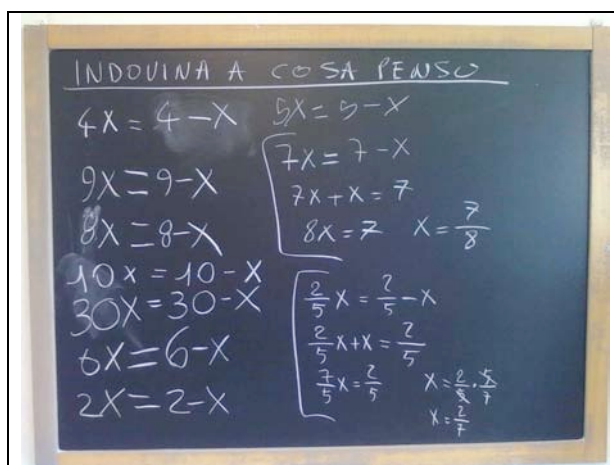 INDOVINA A COSA PENSO
4x = 4 - x
9x = 9 - x
8x = 8 - x
10x = 10 - x
30x = 30 - x
6x = 6 - x
2x = 2 - x
5x = 5 - x
7x = 7 - x
7x + x = 7
8x = 7 x = 7/8
2/5 x = 2/5 - x
2/5 x + x = 2/5
7/5 x = 2/5 x = 2/5 · 5/7
x = 2/7